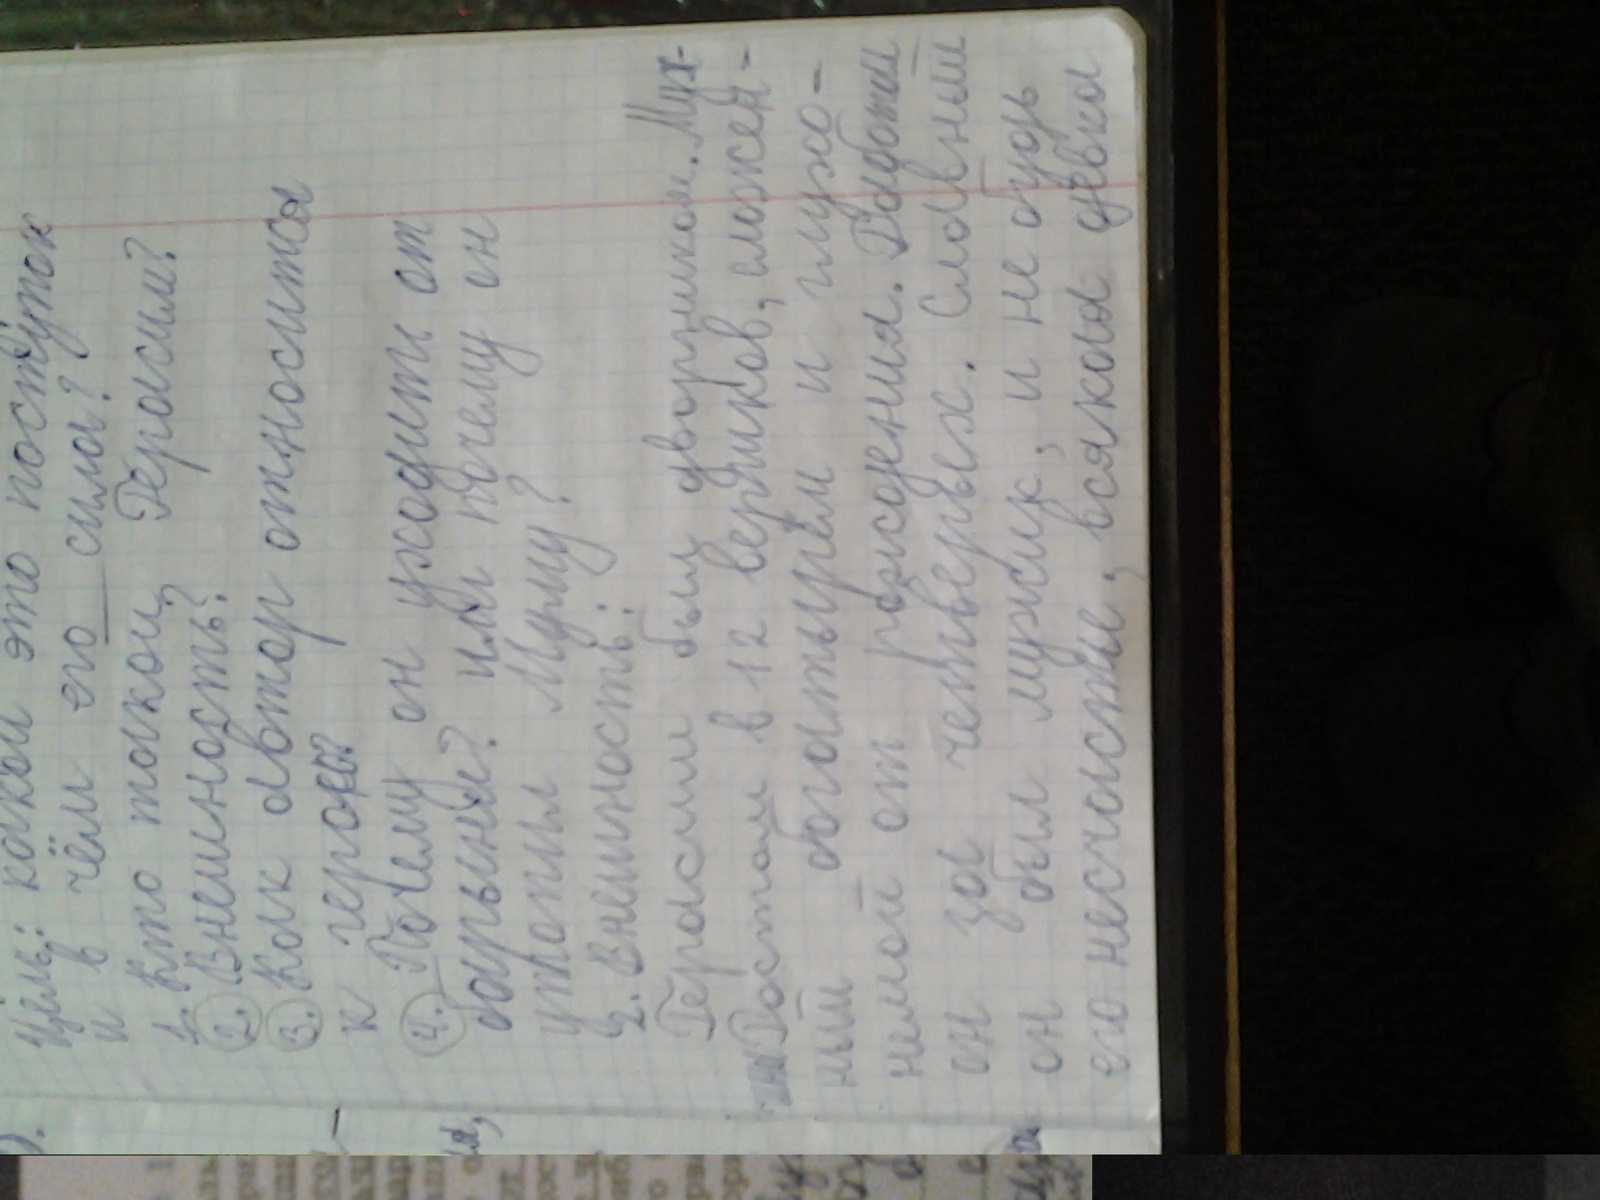 Цель: какой это поступок
и в чём его сила?
1. Кто такой Герасим?
2. Внешность?
3. Как автор относится
к герою?
4. Почему он уходит от
барыни? или почему он
утопил Муму?
2. Внешность:
Герасим был дворником. Муж-
чина Ростом в 12 вершков, сложен-
ный богатырём и глухо-
немой от рождения. Работал
он за четверых. Славный
он был мужик, и не будь
его несчастье, всякая девка